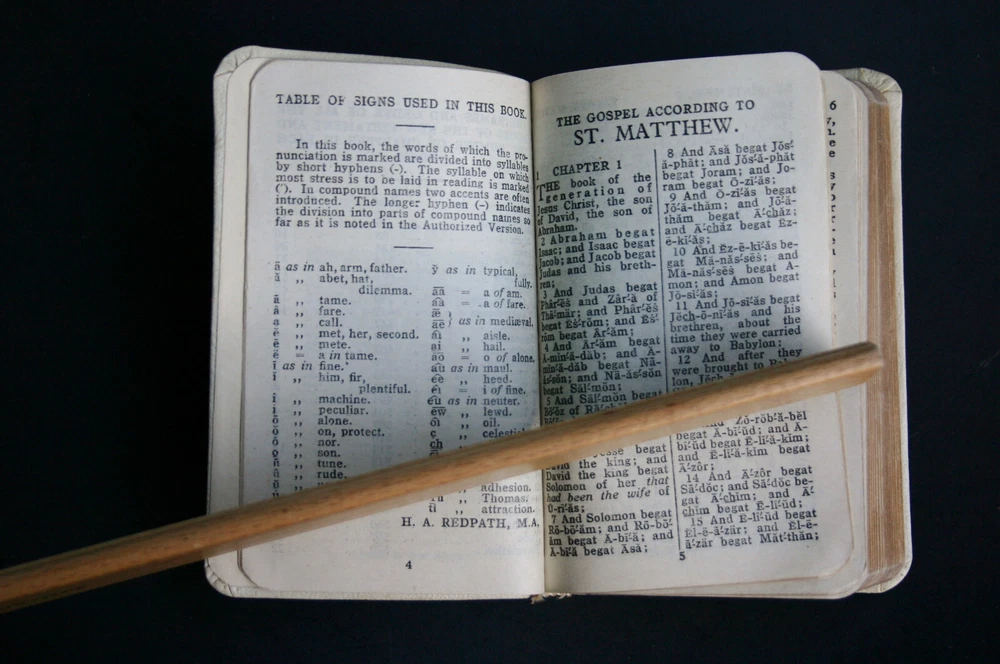 TABLE OF SIGNS USED IN THIS BOOK.
In this book, the words of which the pro-
nunciation is marked are divided into syllables
by short hyphens (-). The syllable on which
most stress is to be laid in reading is marked
('). In compound names two accents are often
introduced. The longer hyphen (–) indicates
the division into parts of compound names so
far as it is noted in the Authorized Version.
ä as in ah, arm, father.
ă ,, abet, hat,
dilemma.
ā ,, tame.
â ,, fare.
a ,, call.
ë ,, met, her, second.
ē ,, mete.
ë = a in tame.
ī as in fine.
ĭ ,, him, fir,
plentiful.
î ,, machine.
ị ,, peculiar.
ō ,, alone.
ŏ ,, on, protect.
ô ,, nor.
ọ ,, son.
ū ,, tune.
,, rude.
ȳ as in typical,
fully.
āă = a of am.
āâ = a of fare.
æ
ae } as in mediæval.
ai ,, aisle.
ai ,, hail.
ao = o of alone.
au as in maul.
ee ,, heed.
ei = i of fine.
eu as in neuter.
ew ,, lewd.
oi ,, oil.
ç ,,
ch
,, adhesion.
,, Thomas.
ti ,, attraction.
H. A. REDPATH, M.A.
4
THE GOSPEL ACCORDING TO
ST. MATTHEW.
CHAPTER 1
1 THE book of the
generation of
Jesus Christ, the son
of David, the son of
Abraham.
2 Abraham begat
Isaac; and Isaac begat
Jacob; and Jacob begat
Judas and his breth-
ren;
3 And Judas begat
Phär´ĕs and Zăr´ă of
Thā´mär; and Phär´ĕs
begat Ĕs´rŏm; and Ĕs´
rŏm begat Ār´ăm;
4 And Ār´ăm begat
Ă-mĭn´ă-dăb; and Ă-
mĭn´ă-dăb begat Nă-
ăs´sŏn; and Nă-ăs´sŏn
begat Săl´mŏn;
5 And Săl´mŏn begat
Bō´ŏz of
Jesse begat
David the king; and
David the king begat
Solomon of her that
had been the wife of
Ū-rī´ăs;
7 And Solomon begat
Rō-bō´ăm; and Rō-bō´
ăm begat Ă-bī´ă; and
Ă-bī´ă begat Āsă;
8 And Āsă begat Jŏs´
ă-phăt; and Jŏs´ă-phăt
begat Joram; and Jo-
ram begat Ō-zī´ăs;
9 And Ō-zī´ăs begat
Jō´ă-thăm; and Jō´ă-
thăm begat Ā´chăz;
and Ā´chăz begat Ĕz-
ĕ-kī´ăs;
10 And Ĕz-ĕ-kī´ăs be-
gat Mă-năs´sēṣ; and
Mă-năs´sēṣ begat A-
mon; and Amon begat
Jō-sī´ăs;
11 And Jō-sī´ăs begat
Jĕch-ō-nī´ăs and his
brethren, about the
time they were carried
away to Babylon:
12 And after they
were brought to
lon,
and Zŏ-rŏb´ă-bĕl
begat Ă-bī´ŭd; and Ă-
bī´ŭd begat Ē-lī´ă-kim;
and Ē-lī´ă-kĭm begat
Ā´zŏr;
14 And Ā´zôr begat
Să´dŏc; and Să´dŏc be-
gat Ā´chĭm; and Ā´
chim begat Ē-lī´ŭd;
15 And Ē-lī´ŭd begat
Ĕl-ē-ā´zär; and Ĕl-ē-
ā´zär begat Măt´thăn;
5